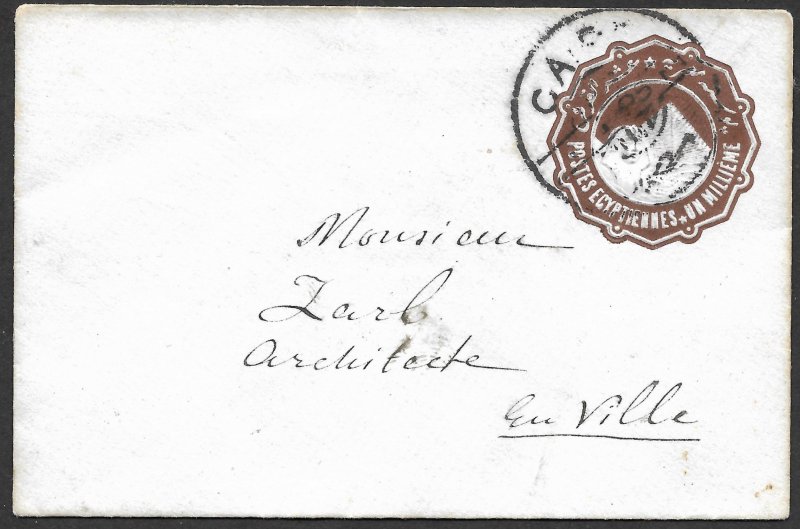 CAI
POSTES EGYPTIENNES UN MILLIÈME
Monsieur
Zarb
Architecte
En Ville